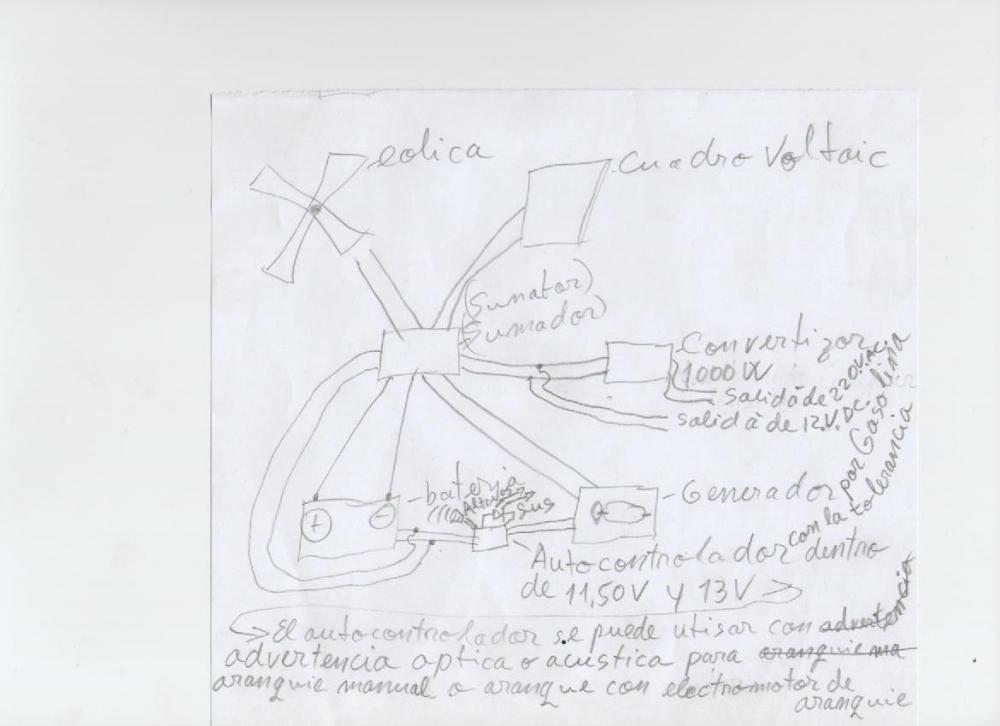 eolica
Cuadro Voltaic
(Sumator)
Sumador)
Convertizor
1000 W
Salidà de 220V.AC.
salidà de 12.V.DC.
bateria
Altavoz
+
-
Generador por Gasolina
Autocontrolador con la tolerancia dentro
de 11,50V y 13V
El autocontrolador se puede utisar con advertencia
advertencia optica o acustica para aranquie ma
aranquie manual o aranque con electromotor de
aranquie